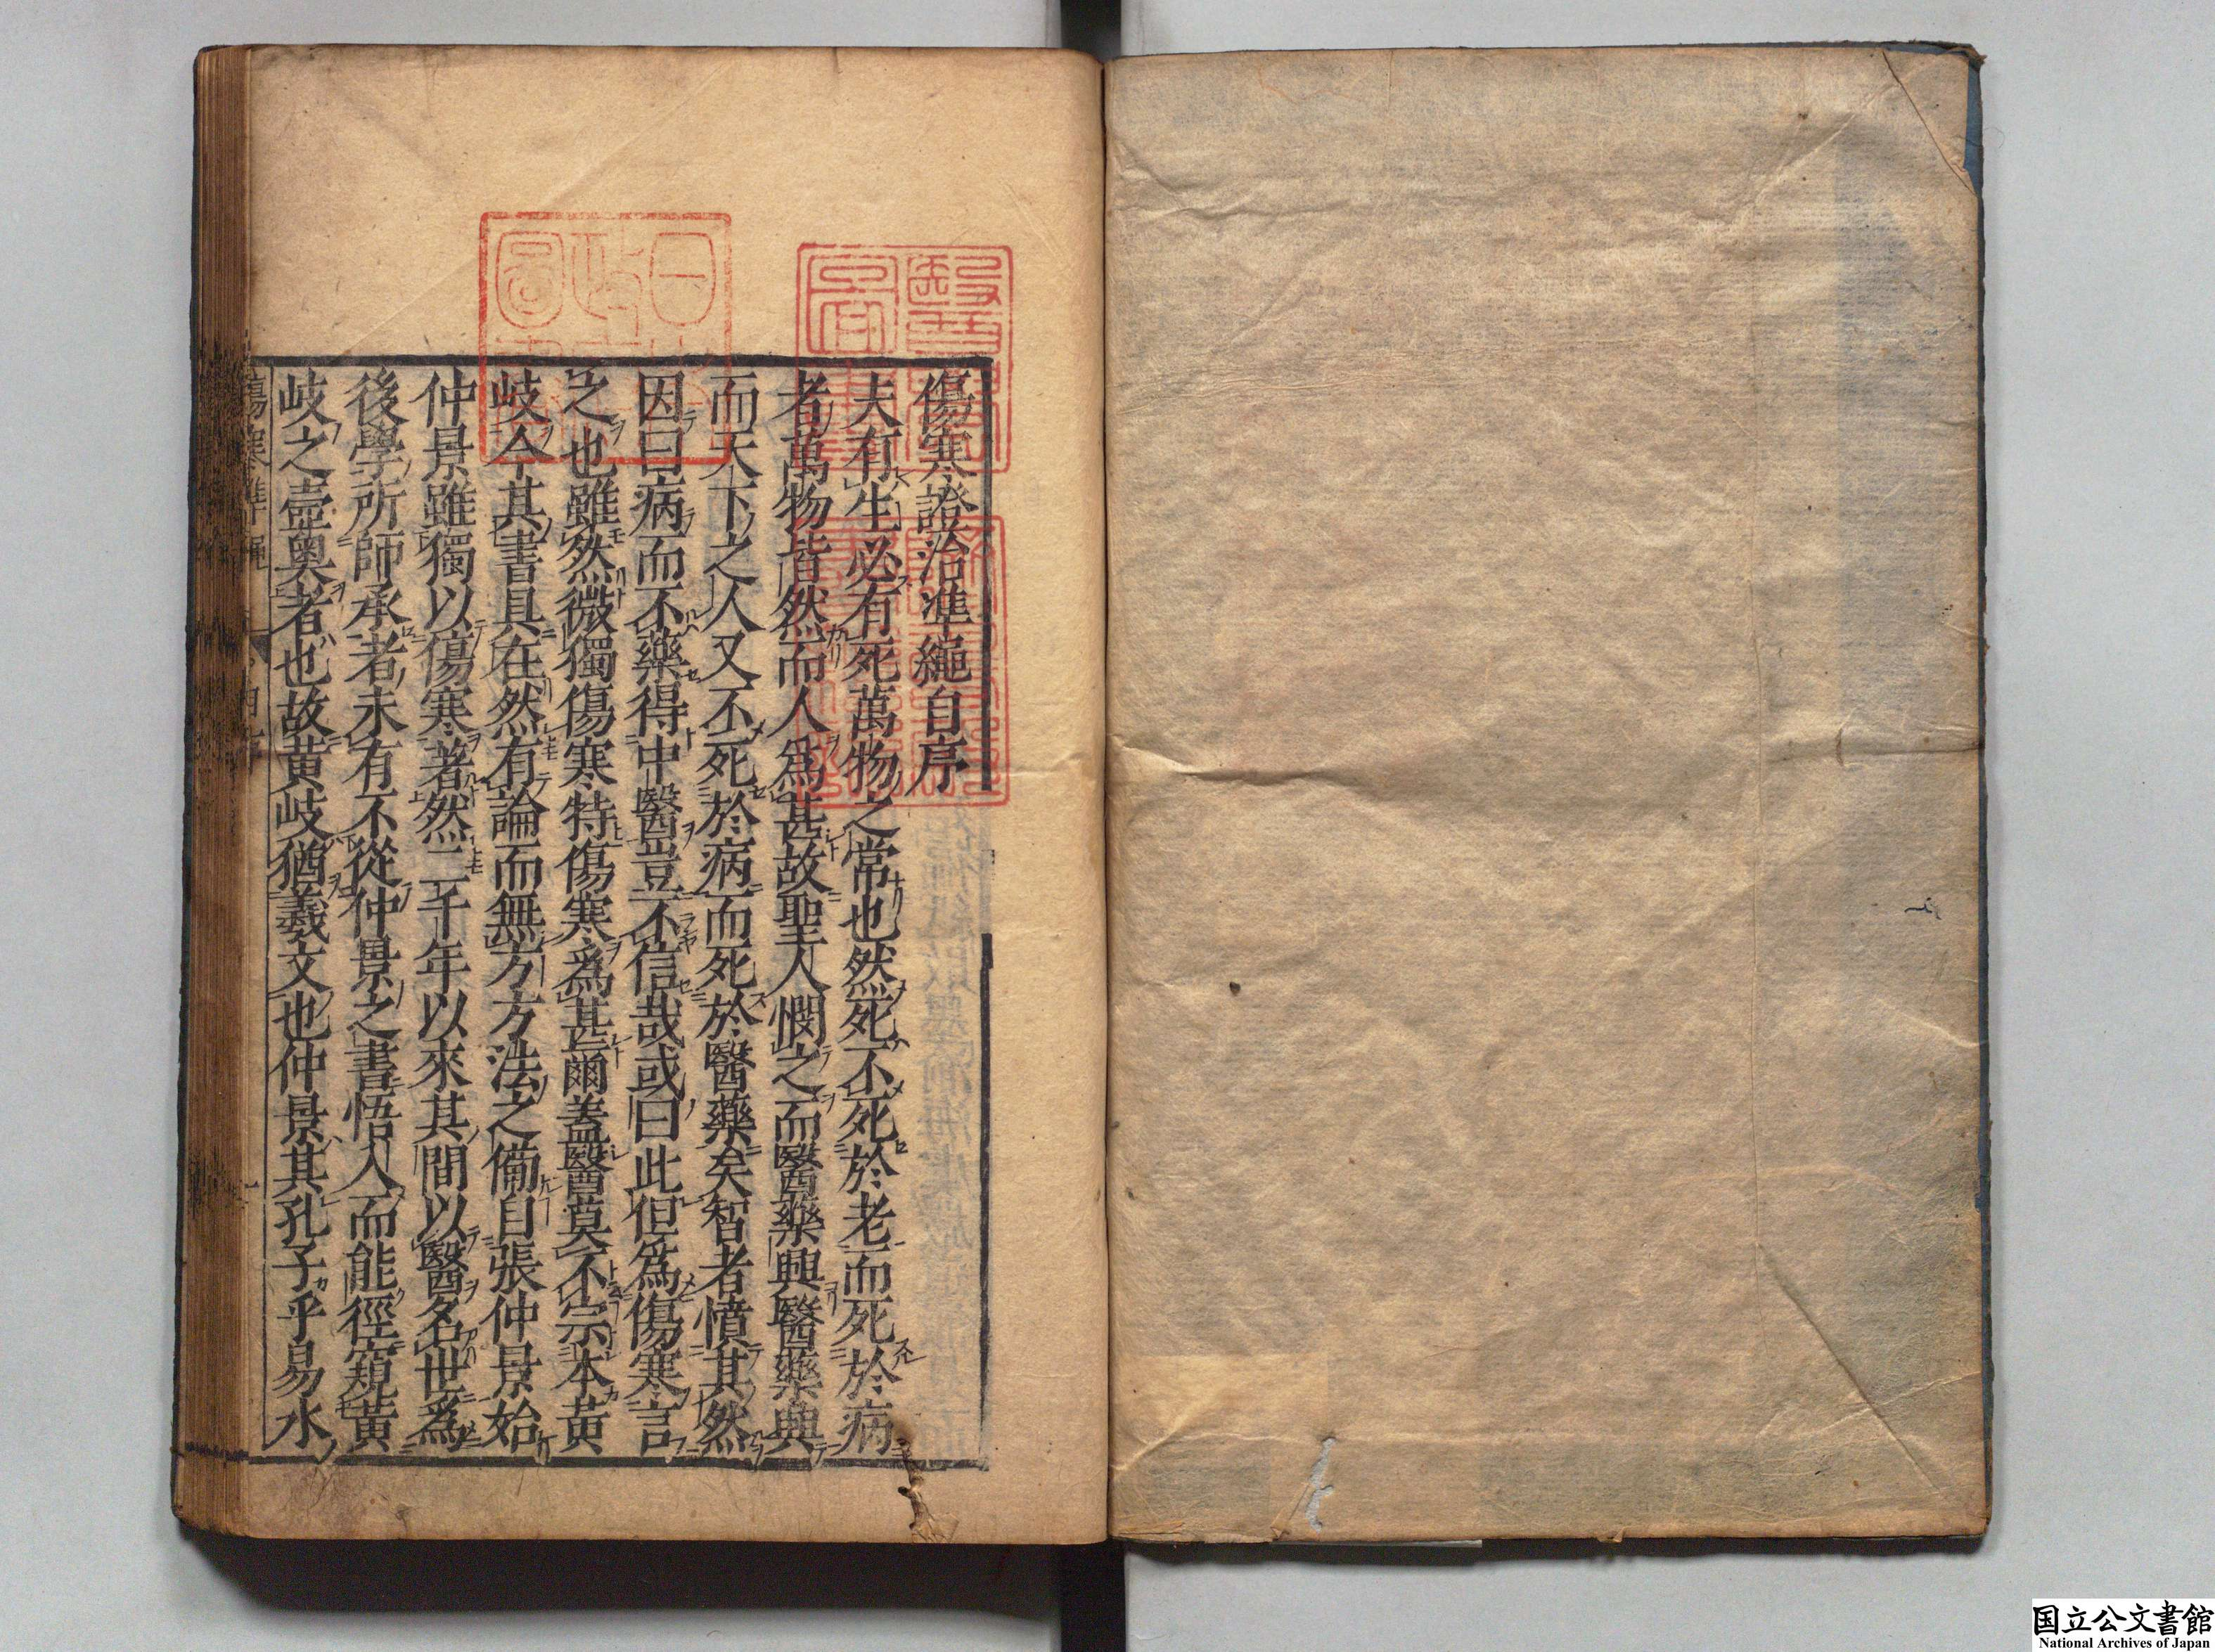 傷寒證治準繩自序
夫有生必有死萬物之常也然死不死於老而死於病
者萬物皆然而人爲甚故聖人憫之而醫藥興醫藥興
而天下之人又不死於病而死於醫藥矣智者憤其然
因曰病而不藥得中醫豈不信哉或曰此但爲傷寒言
之也雖然微獨傷寒特傷寒爲甚爾蓋醫莫不宗本黃
岐今其書具在然有論而無方方法之備自張仲景始
仲景雖獨以傷寒著然二千年以來其間以醫名世爲
後學所師承者未有不從仲景之書悟入而能徑窺黃
岐之壼奧者也故黃岐猶羲文也仲景其孔子乎易水
傷寒準繩 自序 一
国立公文書館
National Archives of Japan